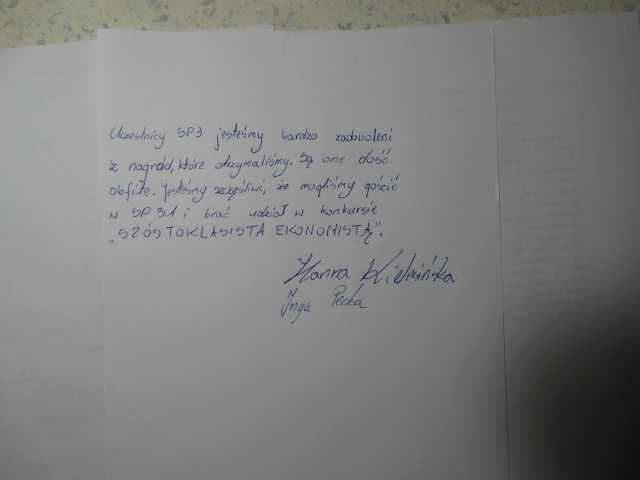 Uczestnicy SP3 jesteśmy bardzo zadowoleni
z nagród, które otrzymaliśmy. Są one dość
obfite. Jesteśmy szczęśliwi, że mogliśmy gościć
w SP 31 i brać udział w konkursie
„SZÓSTOKLASISTA EKONOMISTĄ".
Hanna
Inga Pecka